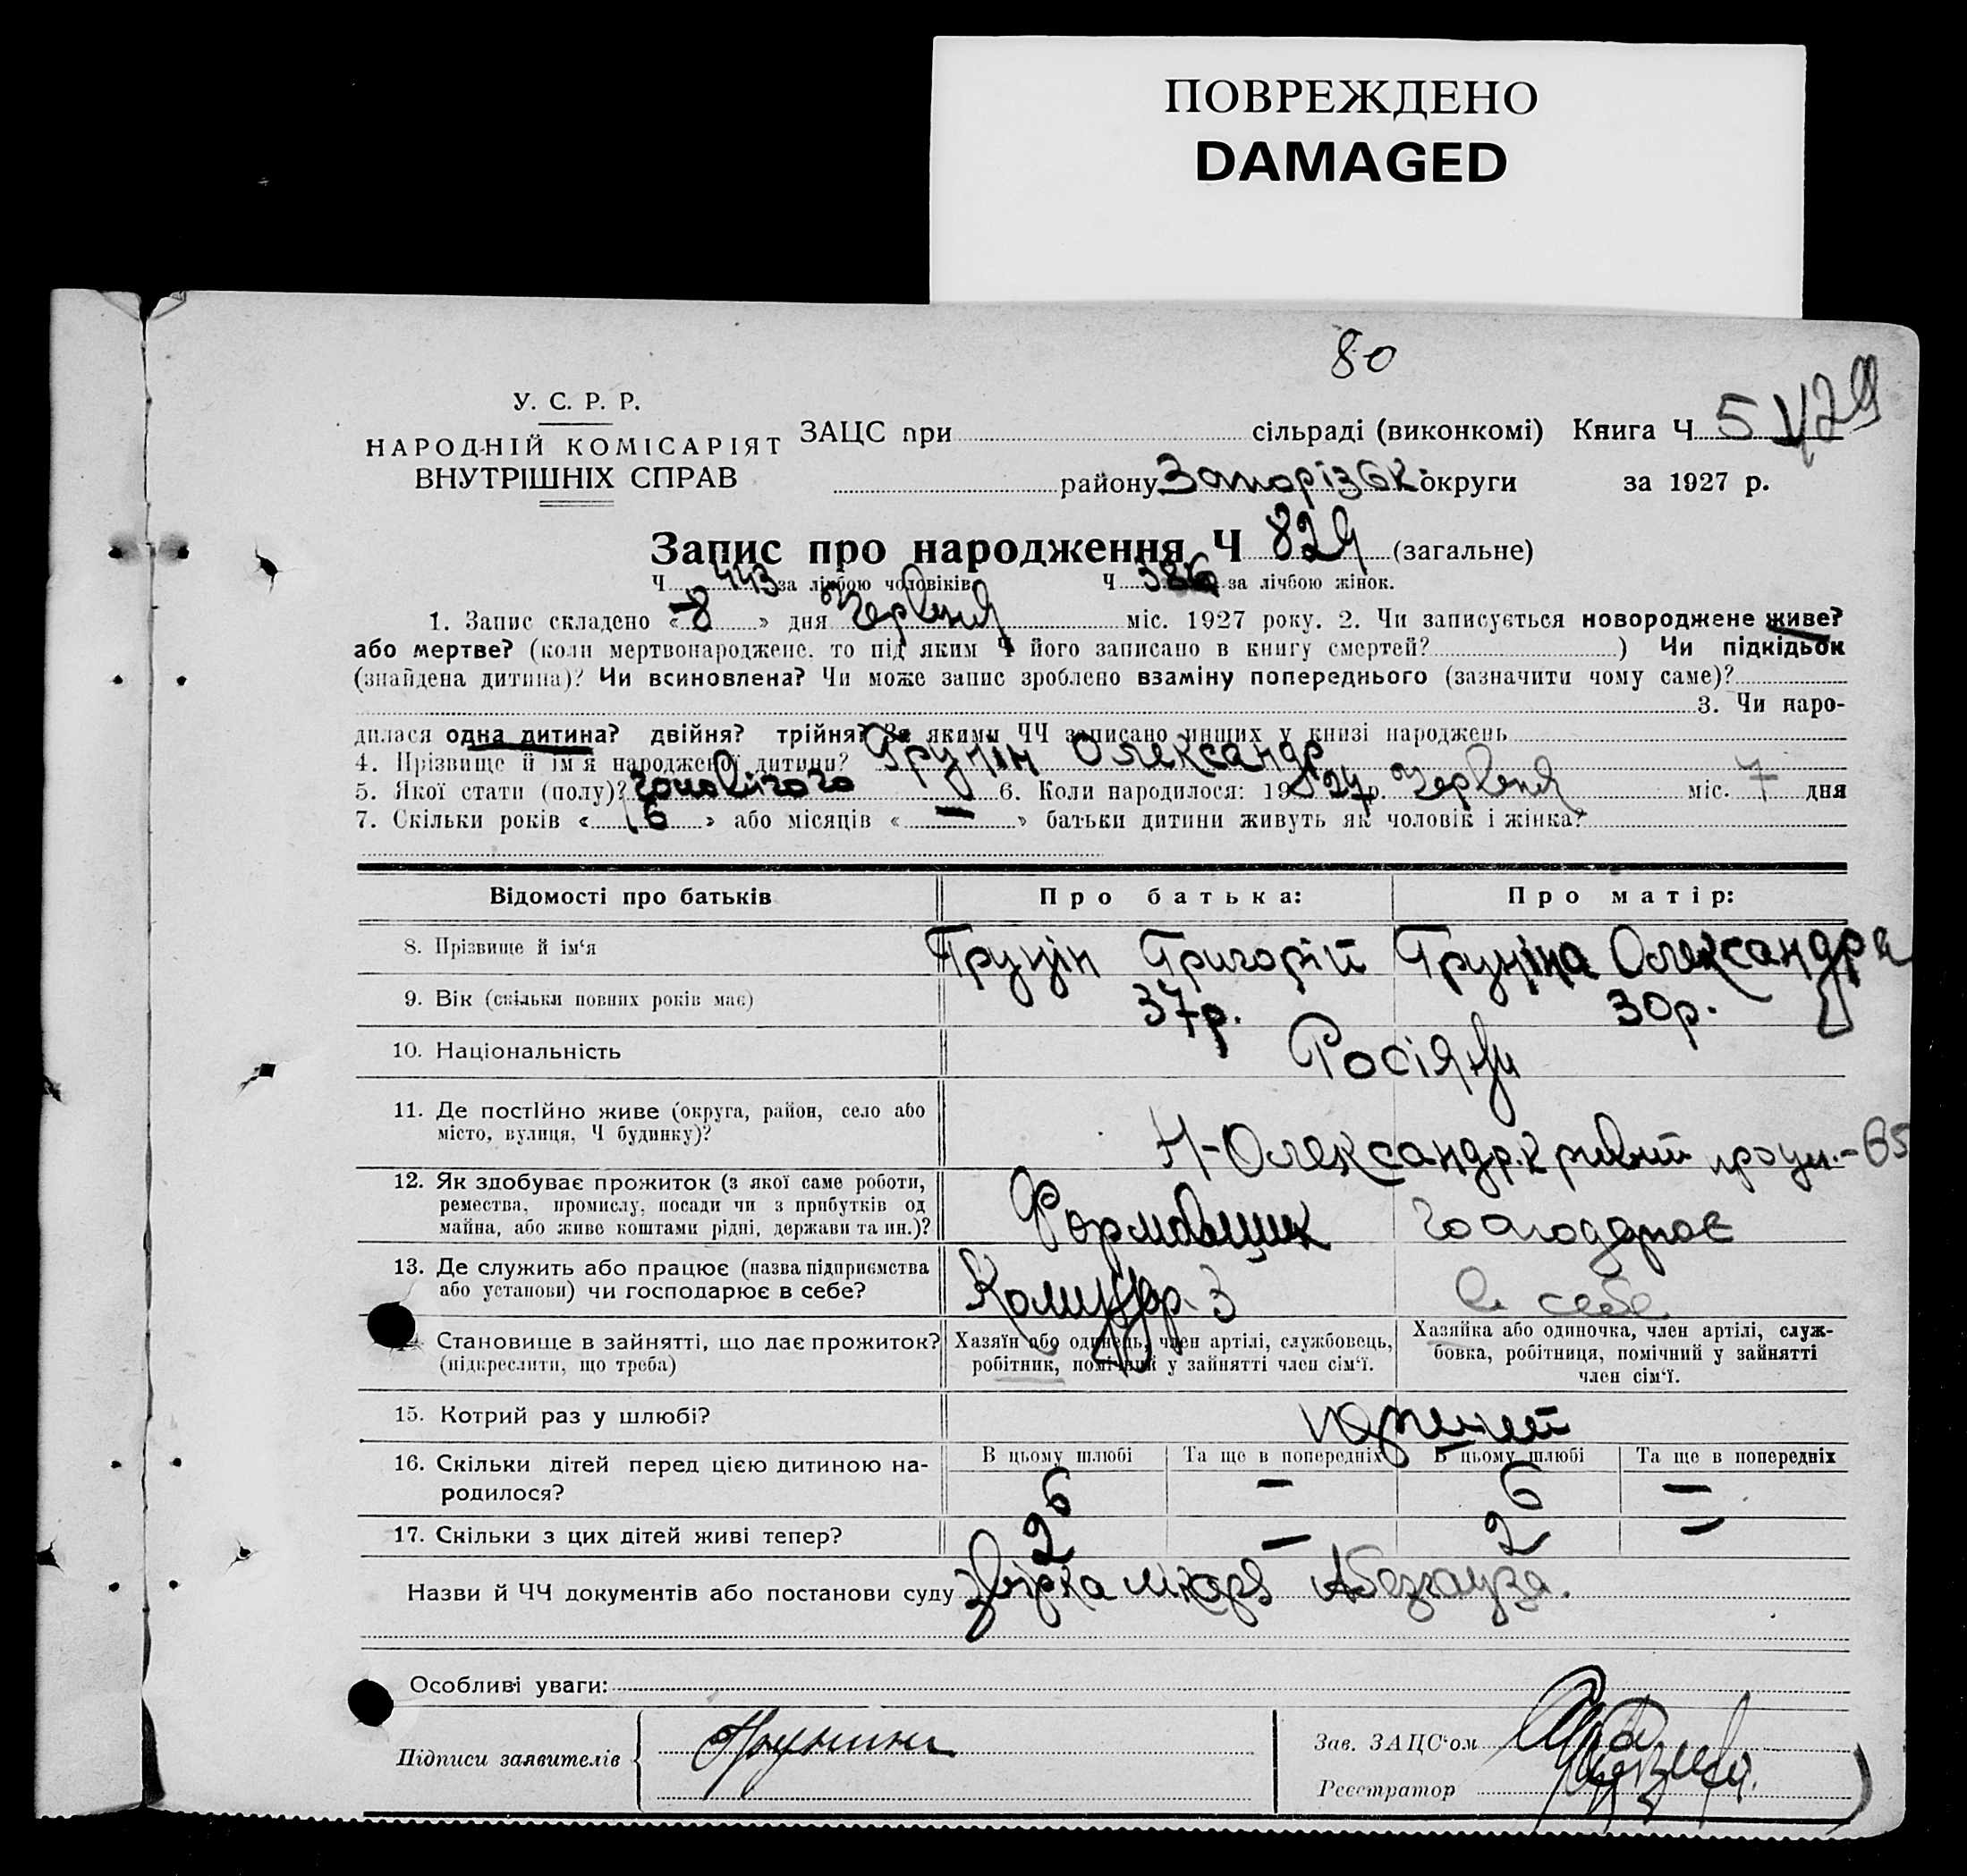 ПОВРЕЖДЕНО
DAMAGED
80
У. С. Р. Р.
НАРОДНІЙ КОМІСАРІЯТ
ВНУТРІШНІХ СПРАВ
ЗАЦС при сільраді (виконкомі) Книга Ч 5
району Запорізьк. округи за 1927 р.
Запис про народження Ч 829 (загальне)
Ч 443 за лічбою чоловіків Ч 386 за лічбою жінок.
1. Запис складено « 8 » дня Червня міс. 1927 року. 2. Чи записується новороджене живе?
або мертве? (коли мертвонароджене, то під яким Ч його записано в книгу смертей? ) Чи підкідьок
(знайдена дитина)? Чи всиновлена? Чи може запис зроблено взаміну попереднього (зазначити чому саме)?
3. Чи наро-
дилася одна дитина? двійня? трійня? За якими ЧЧ записано инших у книзі народжень
4. Прізвище й ім'я народженої дитини? Грунін Олександр
5. Якої стати (полу)? чоловічого 6. Коли народилося: 1927 р. Червня міс. 7 дня
7. Скільки років « 16 » або місяців « — » батьки дитини живуть як чоловік і жінка?
Відомості про батьків Про батька: Про матір:
8. Прізвище й ім‘я Грунін Григорій Груніна Олександра
9. Вік (скільки повних років має) 37р. 30р.
10. Національність Росіяни
11. Де постійно живе (округа, район, село або
місто, вулиця, Ч будинку)? Н-Олександр. кривий 65
12. Як здобуває прожиток (з якої саме роботи,
ремества, промислу, посади чи з прибутків од
майна, або живе коштами рідні, держави та ин.)? Формовщик
13. Де служить або працює (назва підприємства
або установи) чи господарює в себе? Комунар з в себе
Становище в зайнятті, що дає прожиток?
(підкреслити, що треба)
Хазяїн або одинець, член артілі, службовець,
робітник, помічний у зайнятті член сім‘ї.
Хазяйка або одиночка, член артілі, служ-
бовка, робітниця, помічний у зайнятті
член сім‘ї.
15. Котрий раз у шлюбі?
В цьому шлюбі Та ще в попередніх В цьому шлюбі Та ще в попередніх
16. Скільки дітей перед цією дитиною на-
родилося? 6 — 6 —
17. Скільки з цих дітей живі тепер? 2 — 2 —
Назви й ЧЧ документів або постанови суду лікаря
Особливі уваги:
Підписи заявителів
Зав. ЗАЦС‘ом
Реєстратор